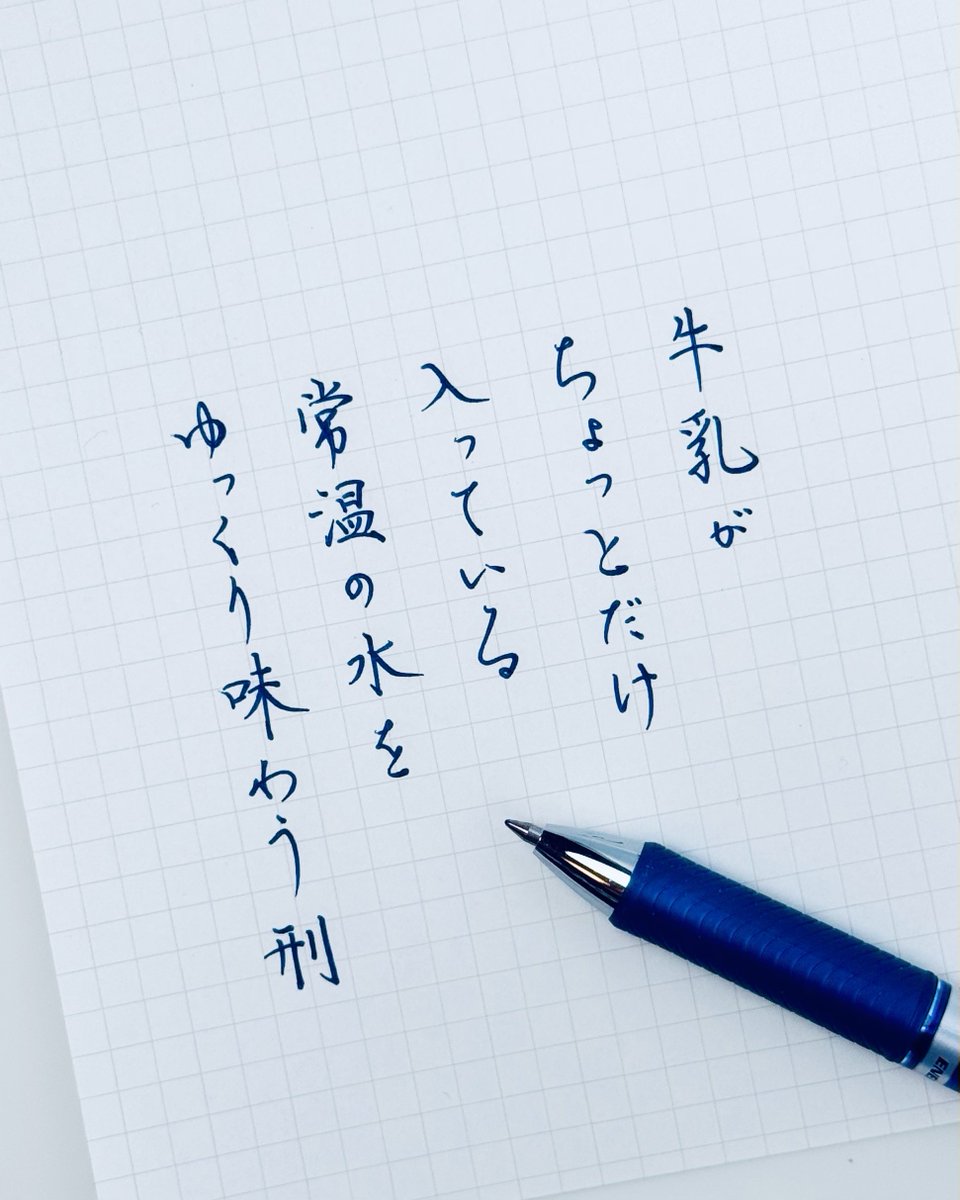 牛乳が
ちょっとだけ
入っている
常温の水を
ゆっくり味わう刑